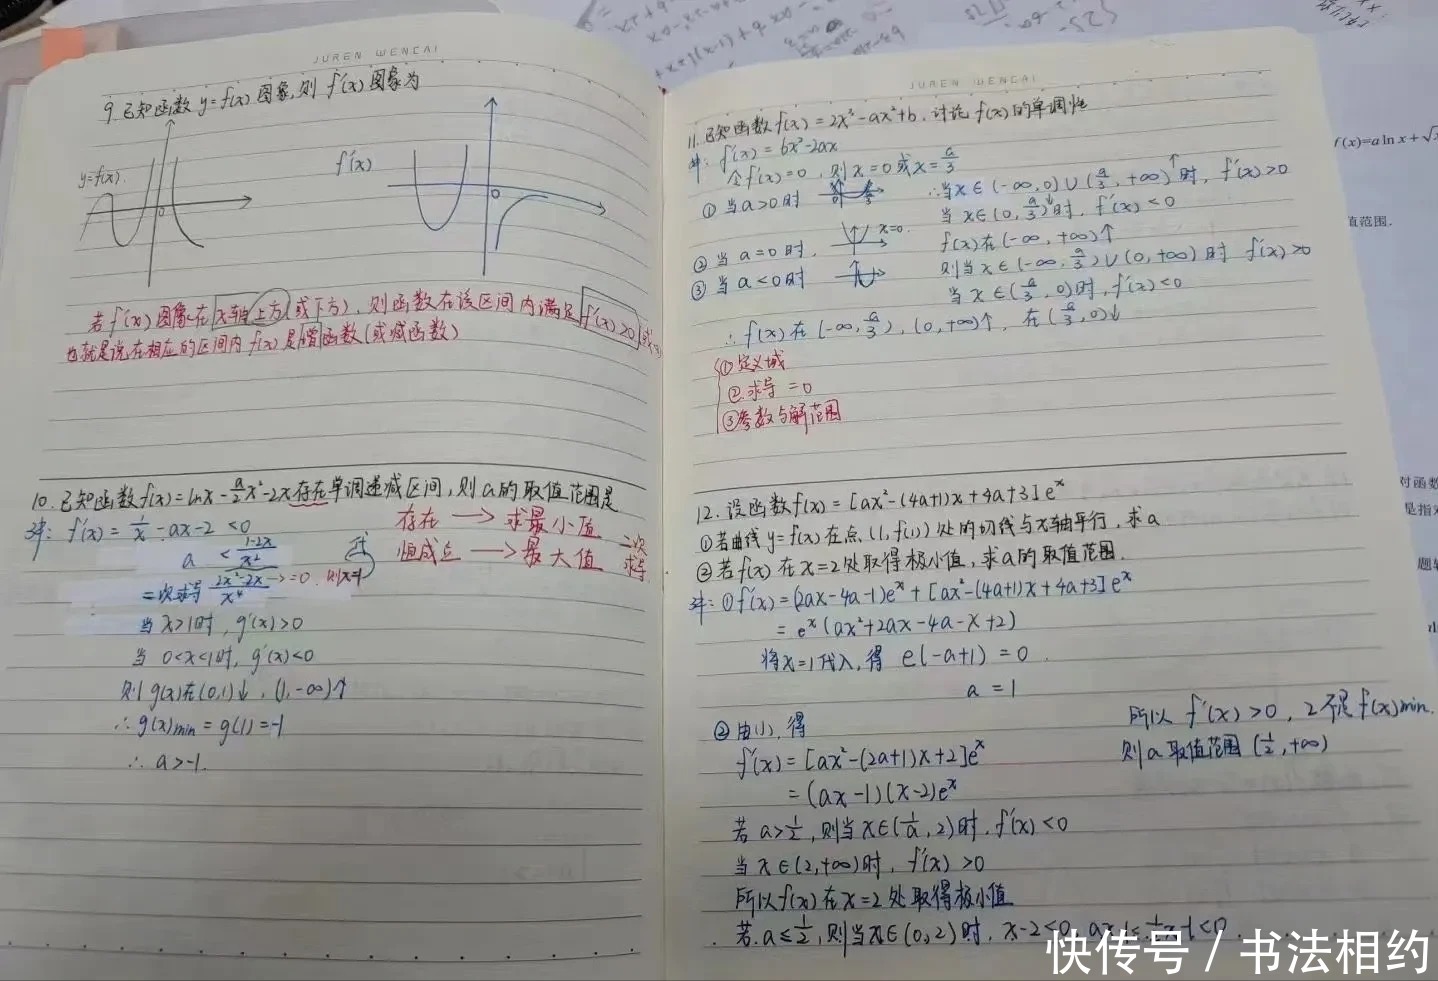 JUREN WENCAI
9.已知函数y=f(x)图象,则f'(x)图象为
y=f(x)
0
f'(x)
0
若f'(x)图象在x轴上方(或下方),则函数在该区间内满足f'(x)≥0
也就是说在相应的区间内f(x)是增函数(或减函数)
10.已知函数f(x)=lnx-a/2x²-2x存在单调递减区间,则a的取值范围是
解:f'(x)=1/x-ax-2<0
a<(1-2x)/x²
二次求导(2x²-2x)/x⁴→=0.则x=1
存在→求最小值
恒成立→最大值
二次求导
当x>1时,g'(x)>0
当0<x<1时,g'(x)<0
则g(x)在(0,1)↓,(1,-∞)↑
∴g(x)min=g(1)=-1
∴a>-1.
JUREN WENCAI
11.已知函数f(x)=2x³-ax²+b,讨论f(x)的单调性
解:f'(x)=6x²-2ax
令f'(x)=0,则x=0或x=a/3
①当a>0时
∴当x∈(-∞,0)∪(a/3,+∞)↑时,f'(x)>0
当x∈(0,a/3)↓时,f'(x)<0
②当a=0时,
x=0.
f(x)在(-∞,+∞)↑
③当a<0时
则当x∈(-∞,a/3)∪(0,+∞)时 f'(x)>0
当x∈(a/3,0)时,f'(x)<0
∴f(x)在(-∞,a/3),(0,+∞)↑,在(a/3,0)↓
①定义域
②求导=0
③参数与解范围
12.设函数f(x)=[ax²-(4a+1)x+4a+3]eˣ
①若曲线y=f(x)在点(1,f(1))处的切线与x轴平行,求a
②若f(x)在x=2处取得极小值,求a的取值范围.
解:①f'(x)=(2ax-4a-1)eˣ+[ax²-(4a+1)x+4a+3]eˣ
=eˣ(ax²+2ax-4a-x+2)
将x=1代入,得 e(-a+1)=0.
a=1
②由(1),得
f'(x)=[ax²-(2a+1)x+2]eˣ
=(ax-1)(x-2)eˣ
若a>1/2,则当x∈(1/a,2)时,f'(x)<0
当x∈(2,+∞)时,f'(x)>0
所以f(x)在x=2处取得极小值
若.a≤1/2,则当x∈(0,2)时,x-2<0,ax-1≤1/2x-1<0
所以f'(x)>0,2不是f(x)min.
则a取值范围(1/2,+∞)
f(x)=alnx+√x
值范围.
对函数
是指
快传号/书法相约